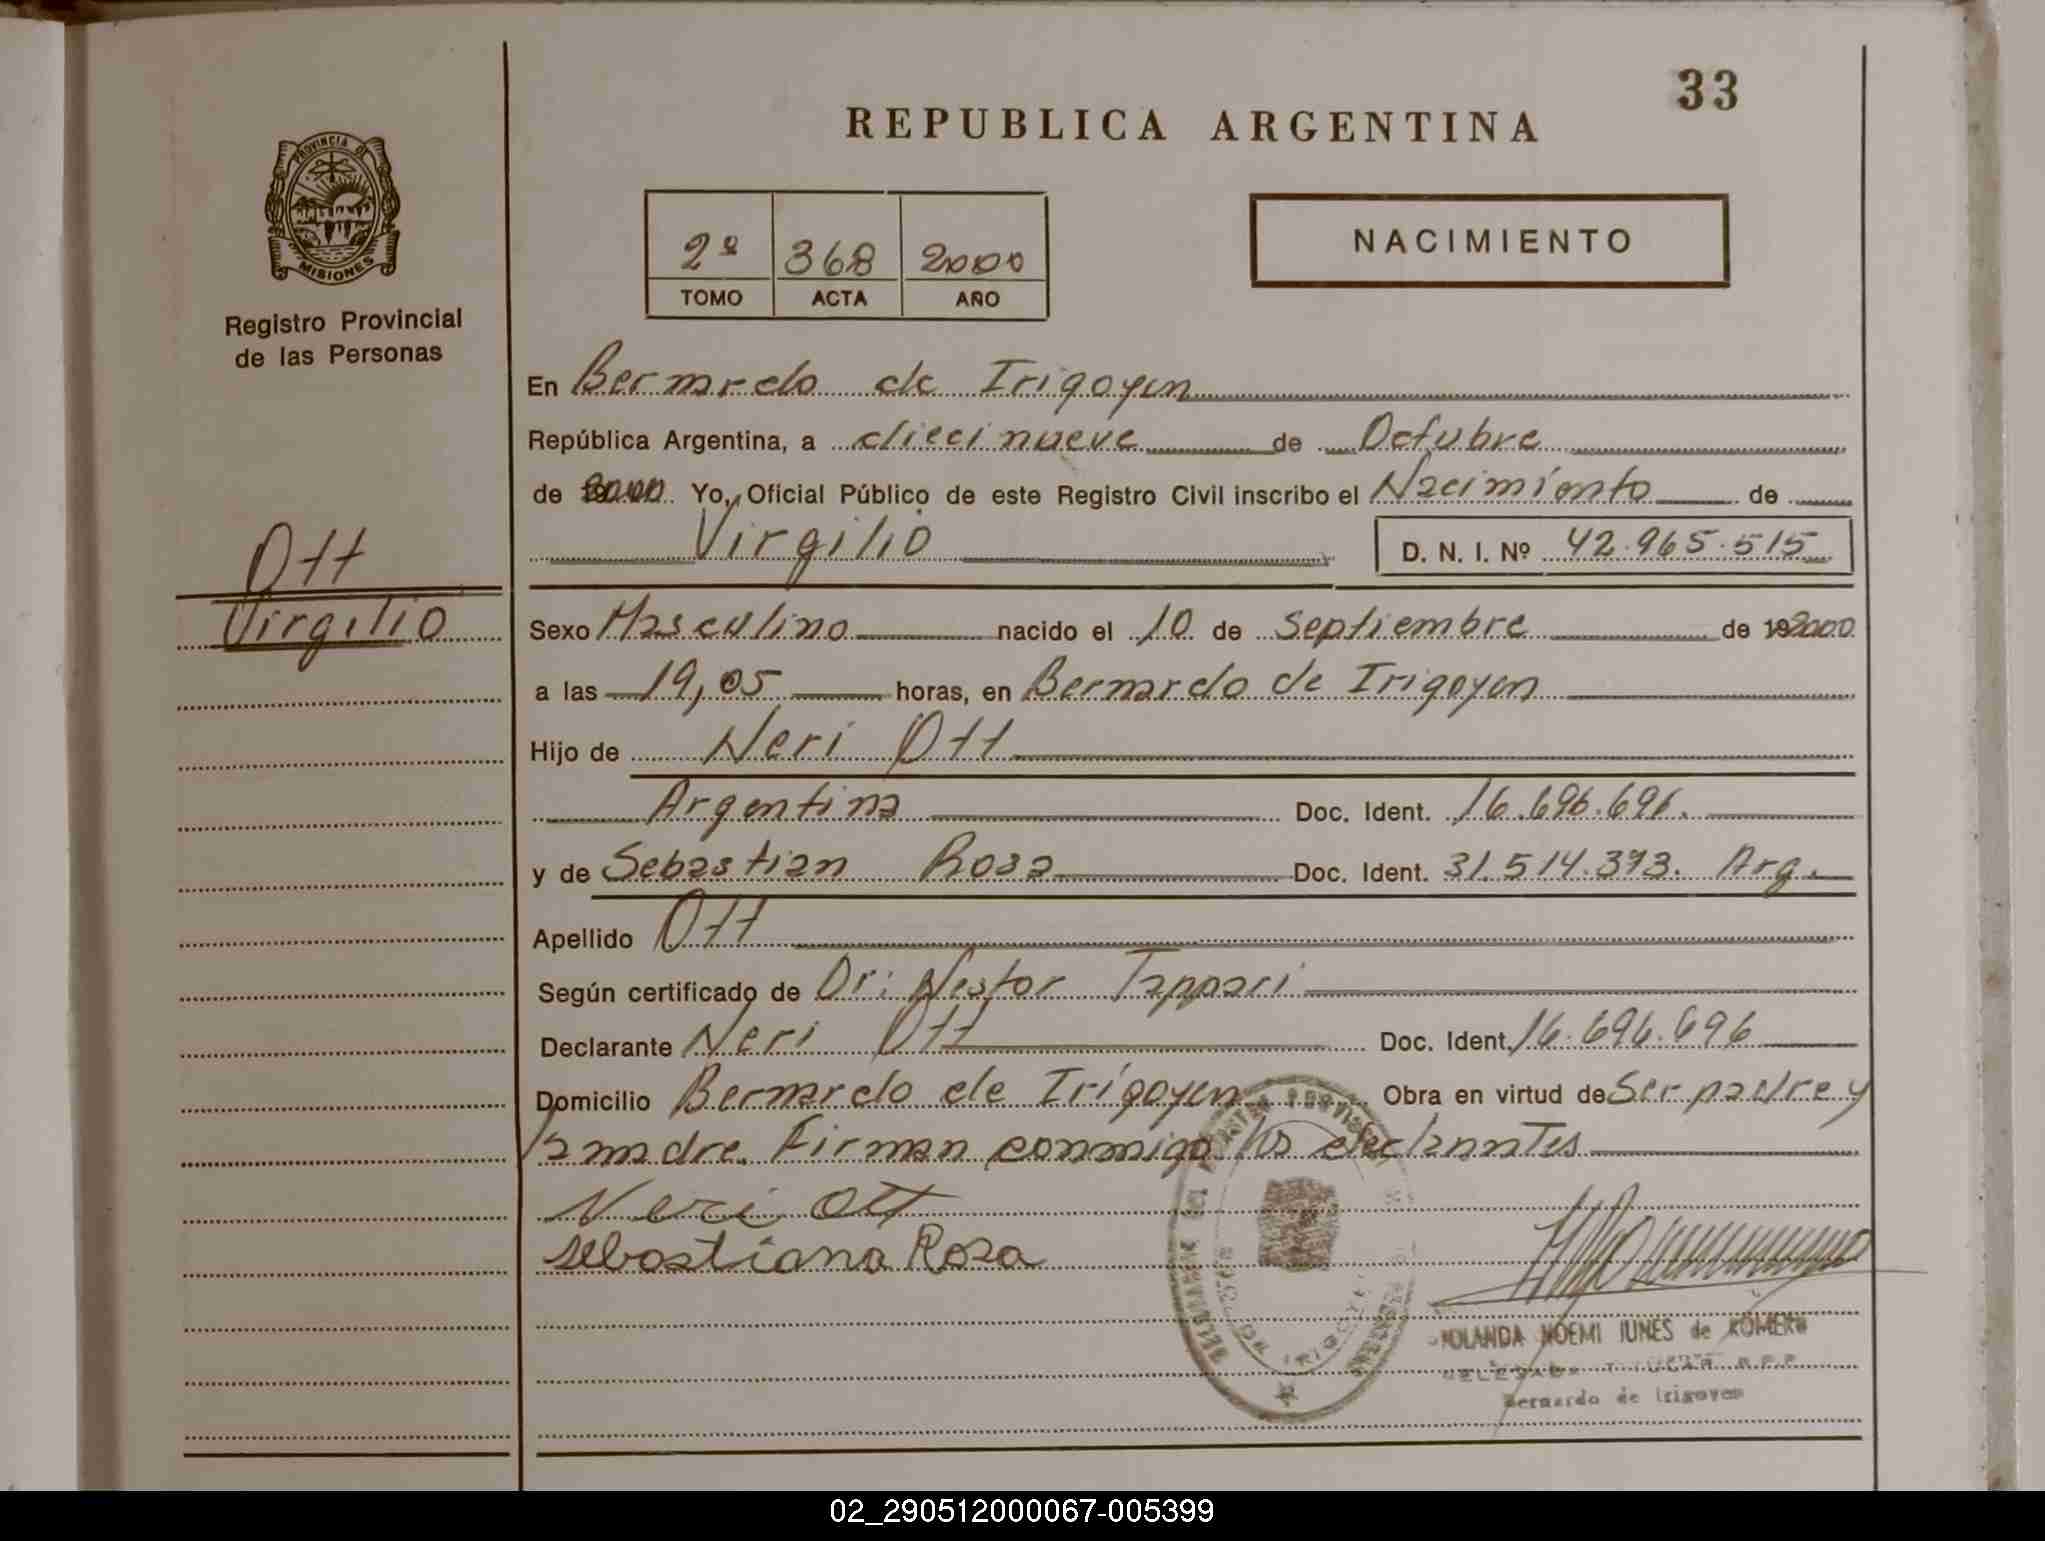 33
REPUBLICA ARGENTINA
PROVINCIA DE
MISIONES
Registro Provincial
de las Personas
2º 368 2000
TOMO ACTA AÑO
NACIMIENTO
En Bernardo de Irigoyen
República Argentina, a diecinueve de Octubre
de 2000 Yo, Oficial Público de este Registro Civil inscribo el Nacimiento de
Virgilio D. N. I. Nº 42.965.515
Ott
Virgilio
Sexo Masculino nacido el 10 de Septiembre de 19 2000
a las 19,05 horas, en Bernardo de Irigoyen
Hijo de Neri Ott
Argentina Doc. Ident. 16.696.696.
y de Sebastian Rosa Doc. Ident. 31.514.373. Arg.
Apellido Ott
Según certificado de Dr: Nestor Tappari
Declarante Neri Ott Doc. Ident. 16.696.696
Domicilio Bernardo de Irigoyen Obra en virtud de Ser padre y
la madre. Firman conmigo los
Neri Ott
sebastiana Rosa
YOLANDA NOEMI IUNES de ROMERO
Bernardo de Irigoyen
02_290512000067-005399